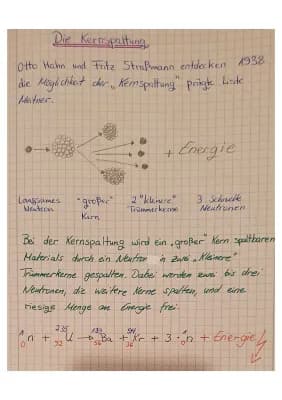 Die Kernspaltung
Otto Hahn und Fritz Straßmann entdecken 1938
die Möglichkeit der „Kernspaltung" prägte Lise
Meitner.
+ Energie
Langsames Neutron
"großer" Kern
2 "kleinere" Trümmerkerne
3 Schnelle Neutronen
Bei der Kernspaltung wird ein „großer" Kern spaltbaren
Materials durch ein Neutron in zwei „kleinere"
Trümmerkerne gespalten. Dabei werden zwei bis drei
Neutronen, die weitere Kerne spalten, und eine
riesige Menge an Energie frei.
¹₀n + ²³⁵₉₂U → Ba + Kr + 3 · n + Energie